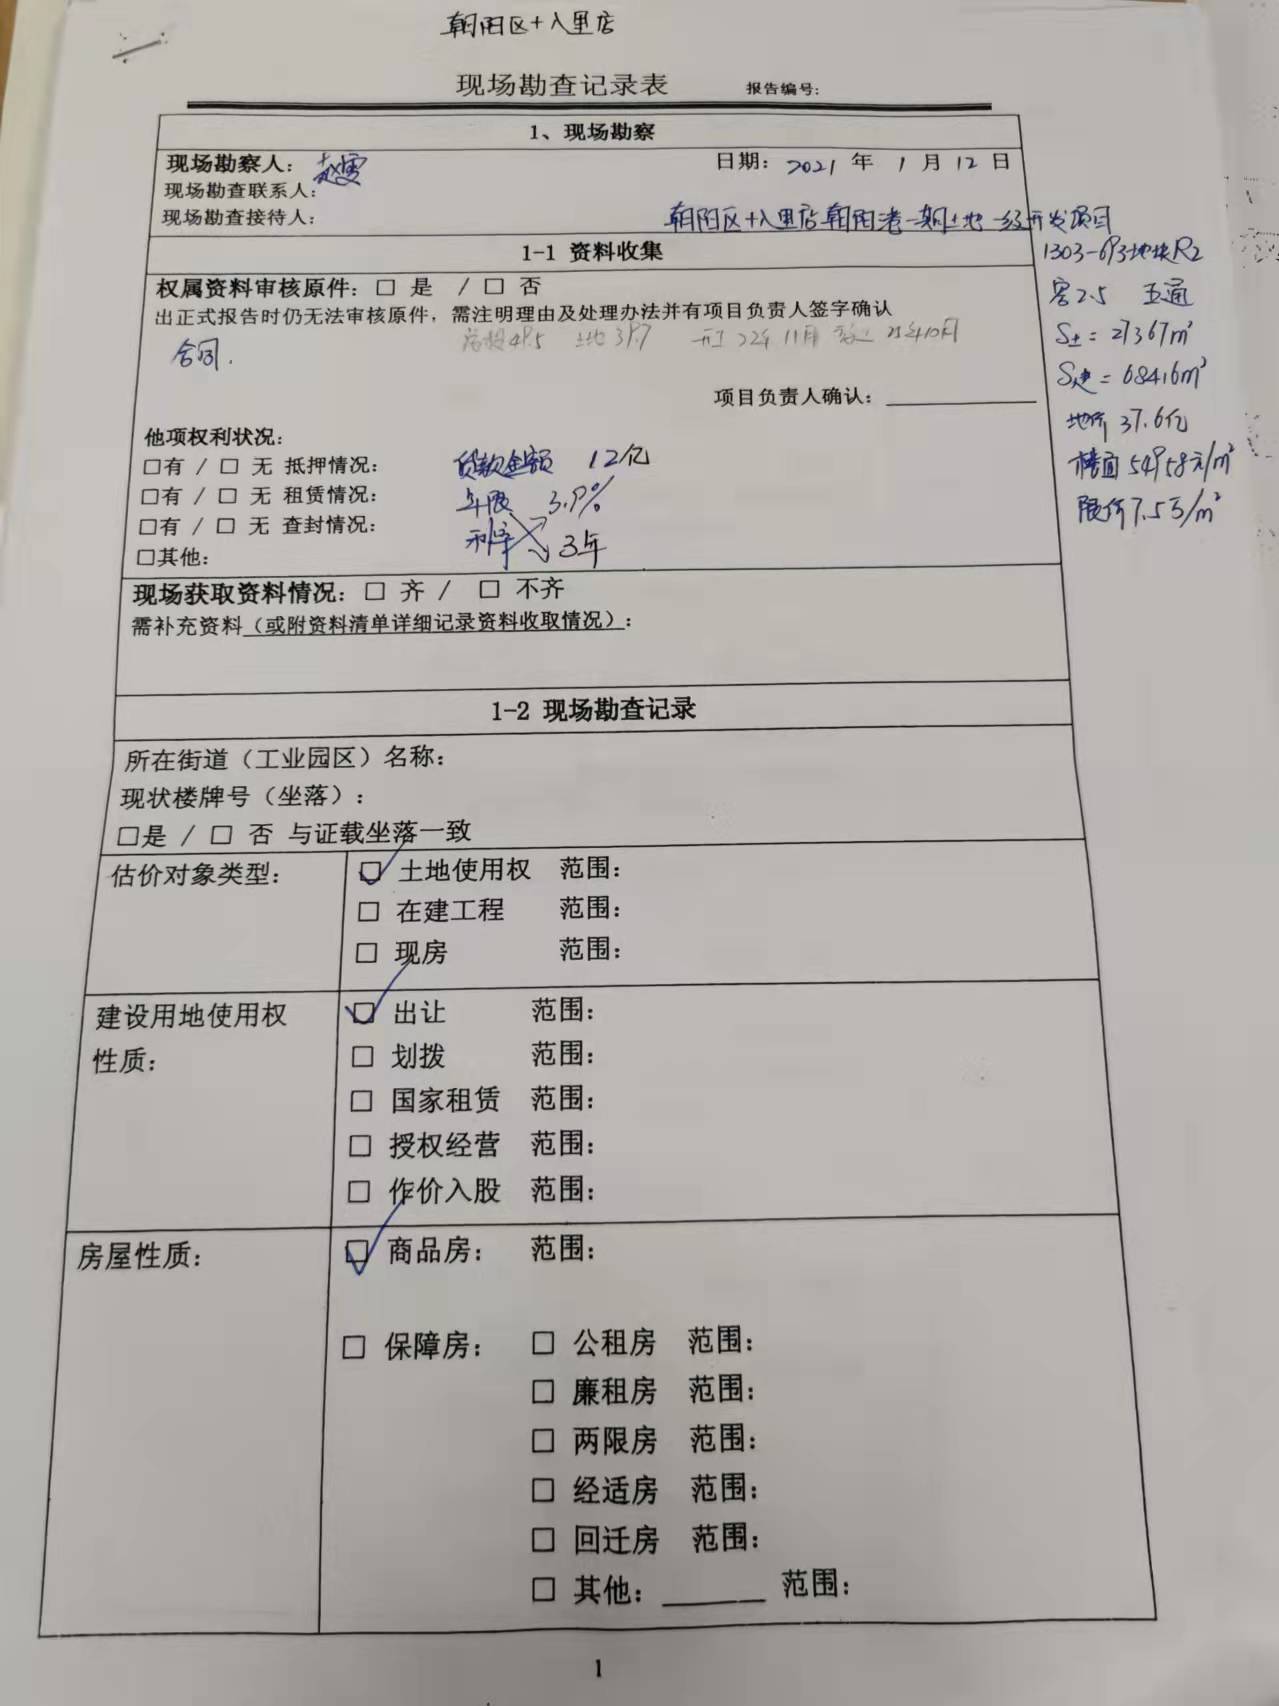 朝阳区十八里店
现场勘查记录表 报告编号:
1、现场勘察
现场勘察人: 赵雯
日期: 2021 年 1 月 12 日
现场勘查联系人:
现场勘查接待人:
朝阳区十八里店朝阳港一期土地一级开发项目
1303-693地块R2
容2.5 五通
S土=27367m²
S建=68416m²
地价 37.6亿
楼面 54958元/m²
限价7.5万/m²
1-1 资料收集
权属资料审核原件: □ 是 / □ 否
出正式报告时仍无法审核原件, 需注明理由及处理办法并有项目负责人签字确认
总投49.5 土地 39.7 开工 22年 11月 25年10月
合同.
项目负责人确认:
他项权利状况:
□有 / □ 无 抵押情况:
□有 / □ 无 租赁情况:
□有 / □ 无 查封情况:
□其他:
贷款金额 12亿
年限 3.9%
利率 3年
现场获取资料情况: □ 齐 / □ 不齐
需补充资料(或附资料清单详细记录资料收取情况):
1-2 现场勘查记录
所在街道(工业园区)名称:
现状楼牌号(坐落):
□是 / □ 否 与证载坐落一致
估价对象类型:
☑ 土地使用权 范围:
□ 在建工程 范围:
□ 现房 范围:
建设用地使用权
性质:
☑ 出让 范围:
□ 划拨 范围:
□ 国家租赁 范围:
□ 授权经营 范围:
□ 作价入股 范围:
房屋性质:
☑ 商品房: 范围:
□ 保障房: □ 公租房 范围:
□ 廉租房 范围:
□ 两限房 范围:
□ 经适房 范围:
□ 回迁房 范围:
□ 其他: ______ 范围:
1